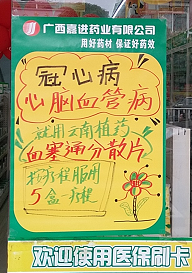 广西嘉进药业有限公司
用好药材 保证好药效
冠心病
心脑血管病
就用云南植药
血塞通分散片
按疗程服用
5盒1疗程
欢迎使用医保刷卡